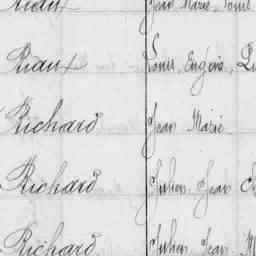 Riaux Jean Marie Louis
Riaux Louis Eugène
Richard Jean Marie
Richard Julien Jean
Richard Julien Jean M